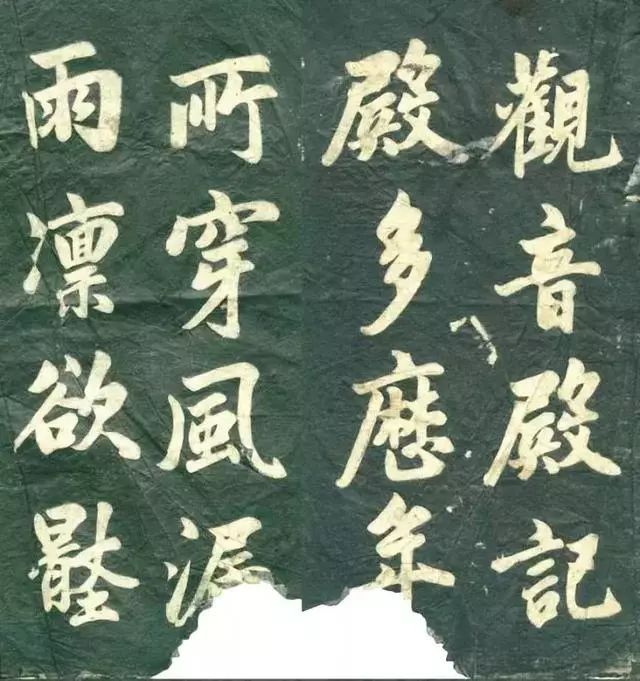 觀音殿記
殿多歷年
所穿風漏
雨凜欲壓